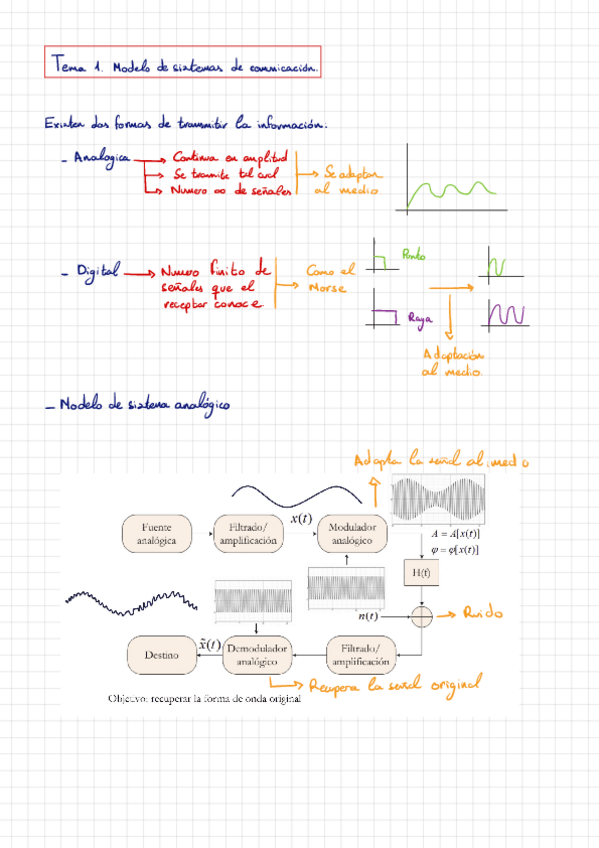 Tema 1. Modelo de sistemas de comunicación.
Existen dos formas de transmitir la información:
- Analógica
Continua en amplitud
Se transmite tal cual
Numero ∞ de señales
Se adaptan
al medio
- Digital
Numero finito de
señales que el
receptor conoce.
Como el
Morse
Punto
Raya
Adaptación
al medio.
- Modelo de sistema analógico
Adapta la señal al medio
Fuente
analógica
Filtrado/
amplificación
x(t)
Modulador
analógico
A = A[x(t)]
φ = φ[x(t)]
H(t)
n(t)
Ruido
Destino
x̃(t)
Demodulador
analógico
Filtrado/
amplificación
Recupera la señal original
Objetivo: recuperar la forma de onda original